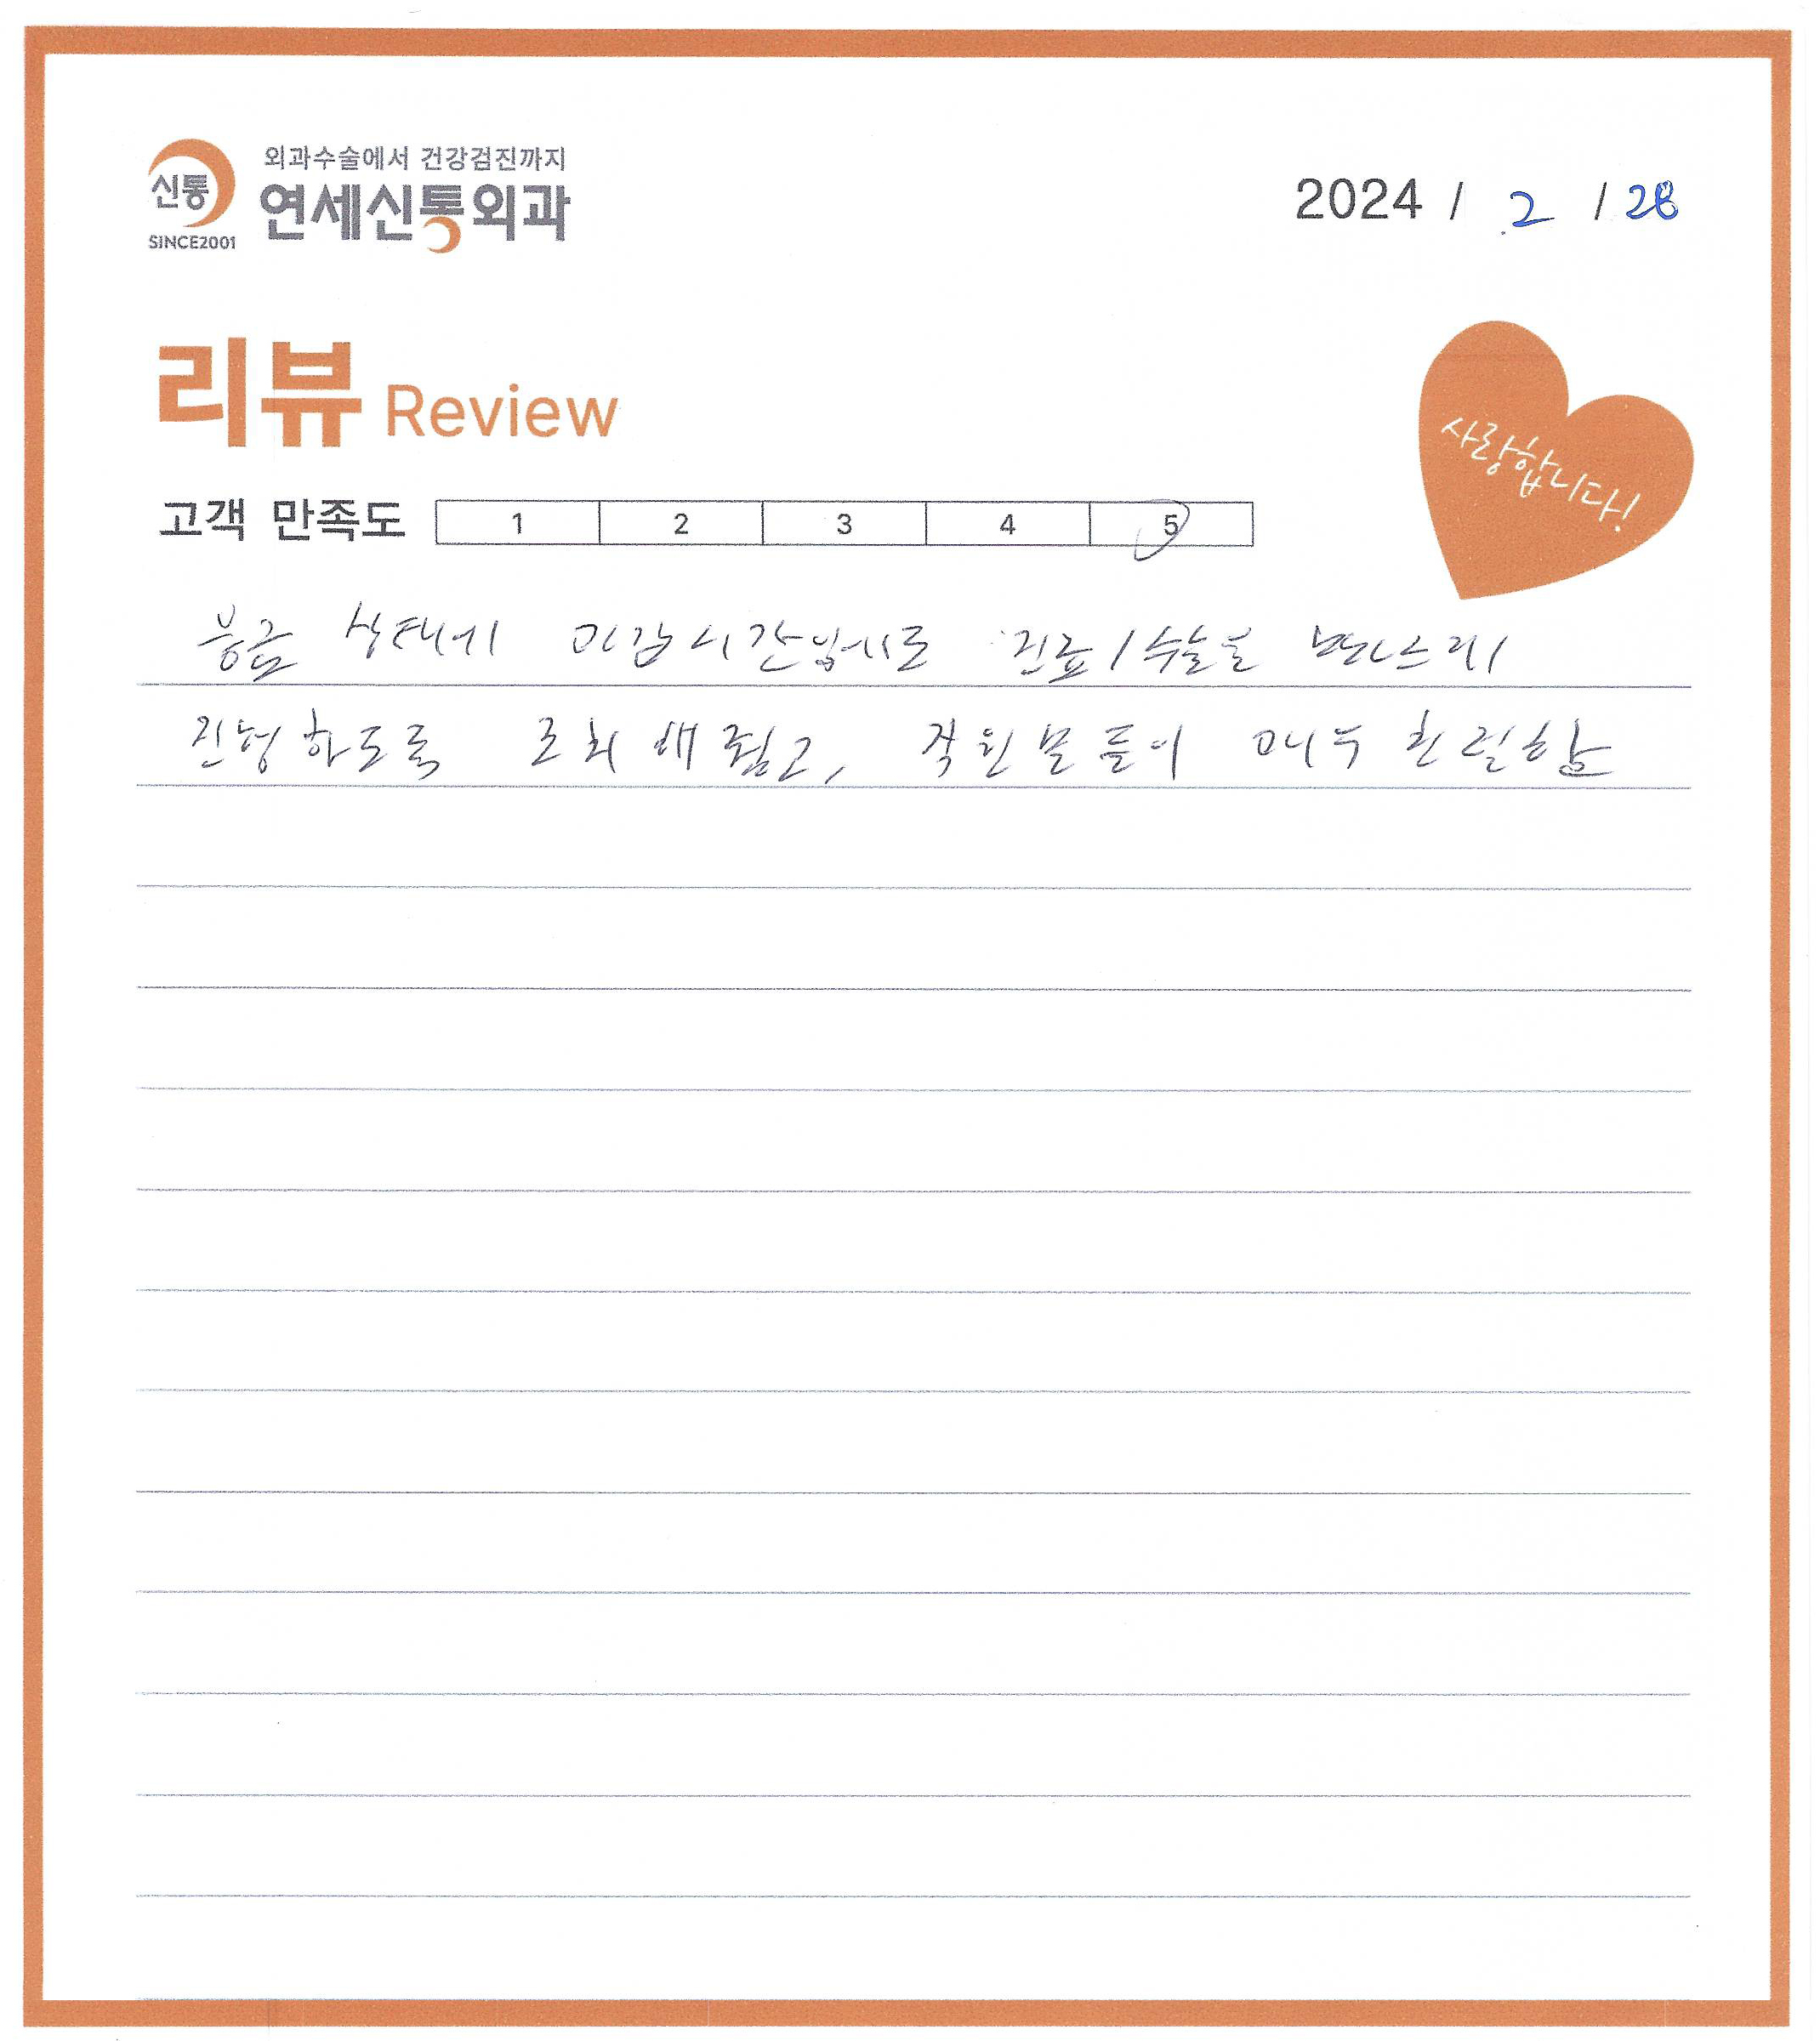 신통
SINCE2001
외과수술에서 건강검진까지
연세신통외과
2024 / 2 / 28
리뷰 Review
사랑합니다!
고객 만족도 1 2 3 4 5
응급 상태에 마감시간임에도 진료/수술을
진행하도록 조치해줬고, 직원분들이 매우 친절함